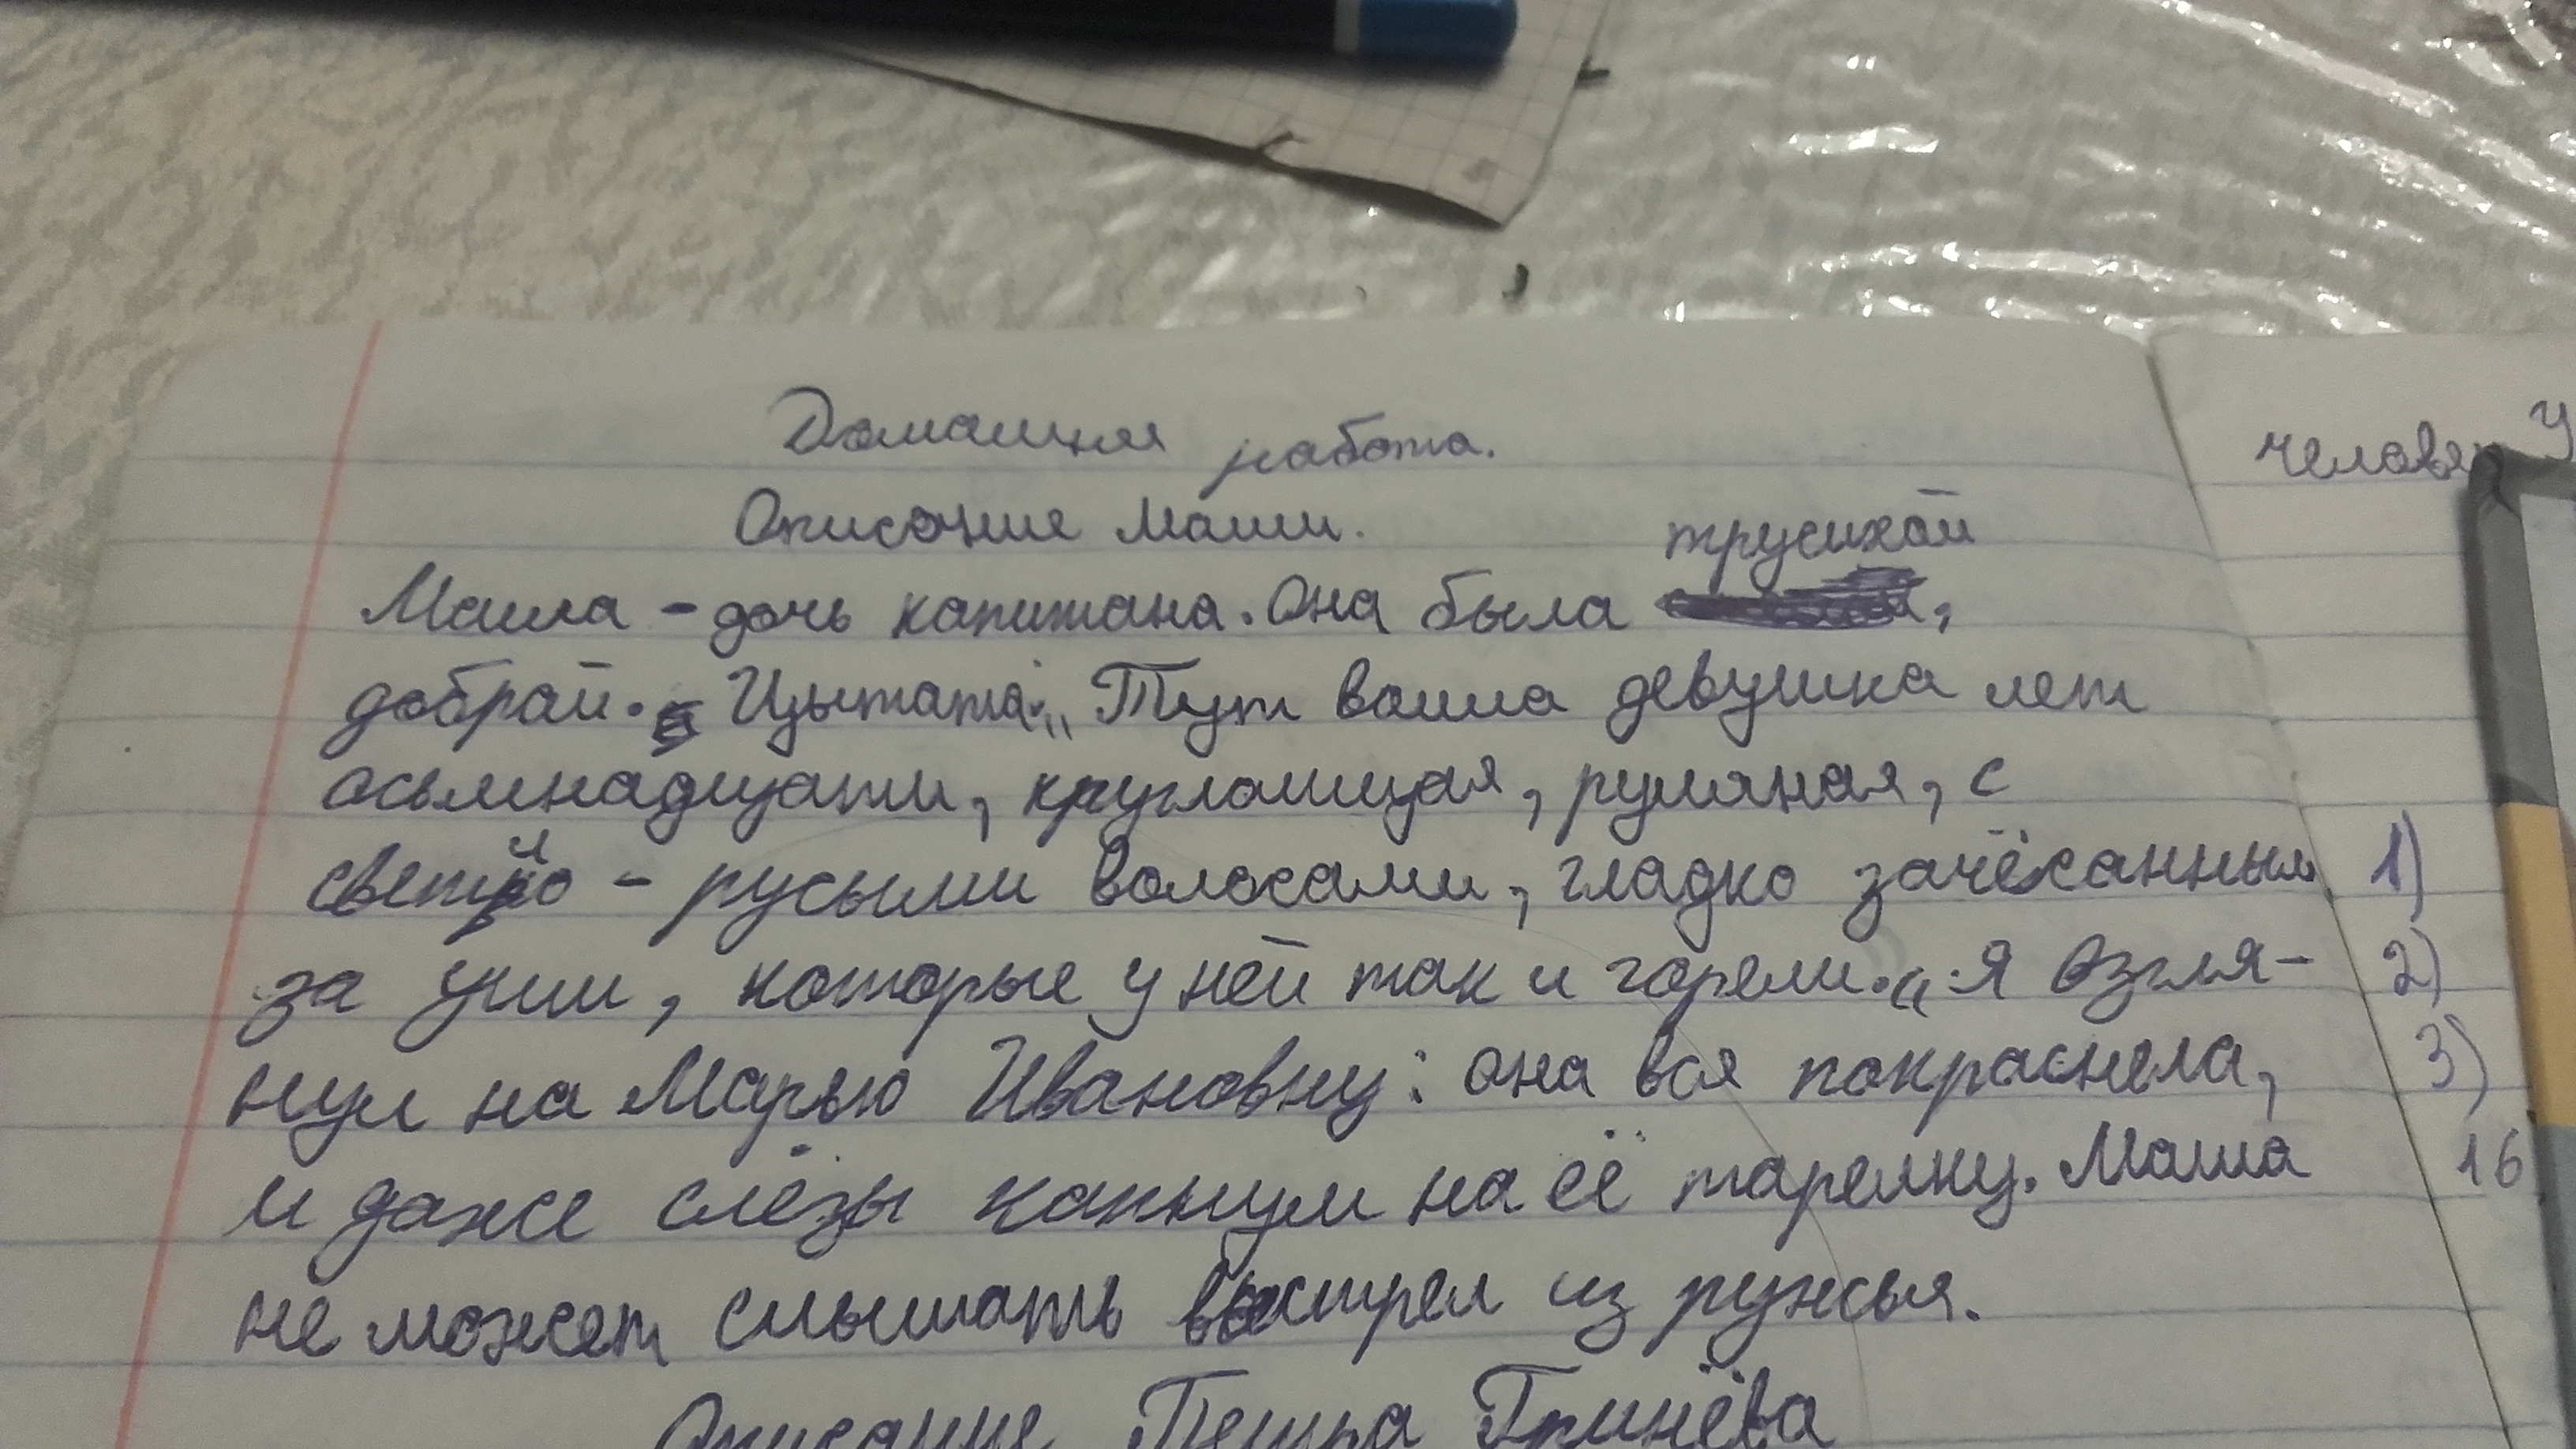 Домашняя работа.
Описание Маши.
трусихой
Маша - дочь капитана. Она была ,
доброй. Цытата: „Тут вошла девушка лет
осьмнадцати, круглолицая, румяная, с
светло - русыми волосами, гладко зачёсанными
за уши, которые у ней так и горели.“ Я взгля-
нул на Марью Ивановну: она вся покраснела,
и даже слёзы капнули на её тарелку. Маша
не может слышать выстрел из ружья.
Описание Петра Гринёва
1)
2)
3)
16